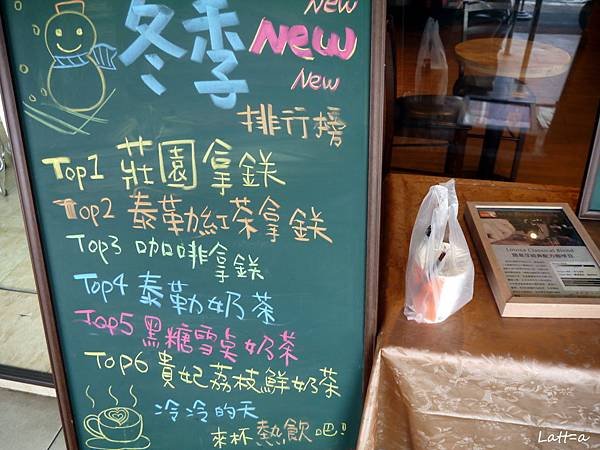 冬季
New
New
New
排行榜
Top1 莊園拿鎂
Top2 泰勒紅茶拿鎂
Top3 咖啡拿鎂
Top4 泰勒奶茶
Top5 黑糖雪泉奶茶
Top6 貴妃荔枝鮮奶茶
冷冷的天
來杯熱飲吧!!
Louisa Classical Blend
Latt=a